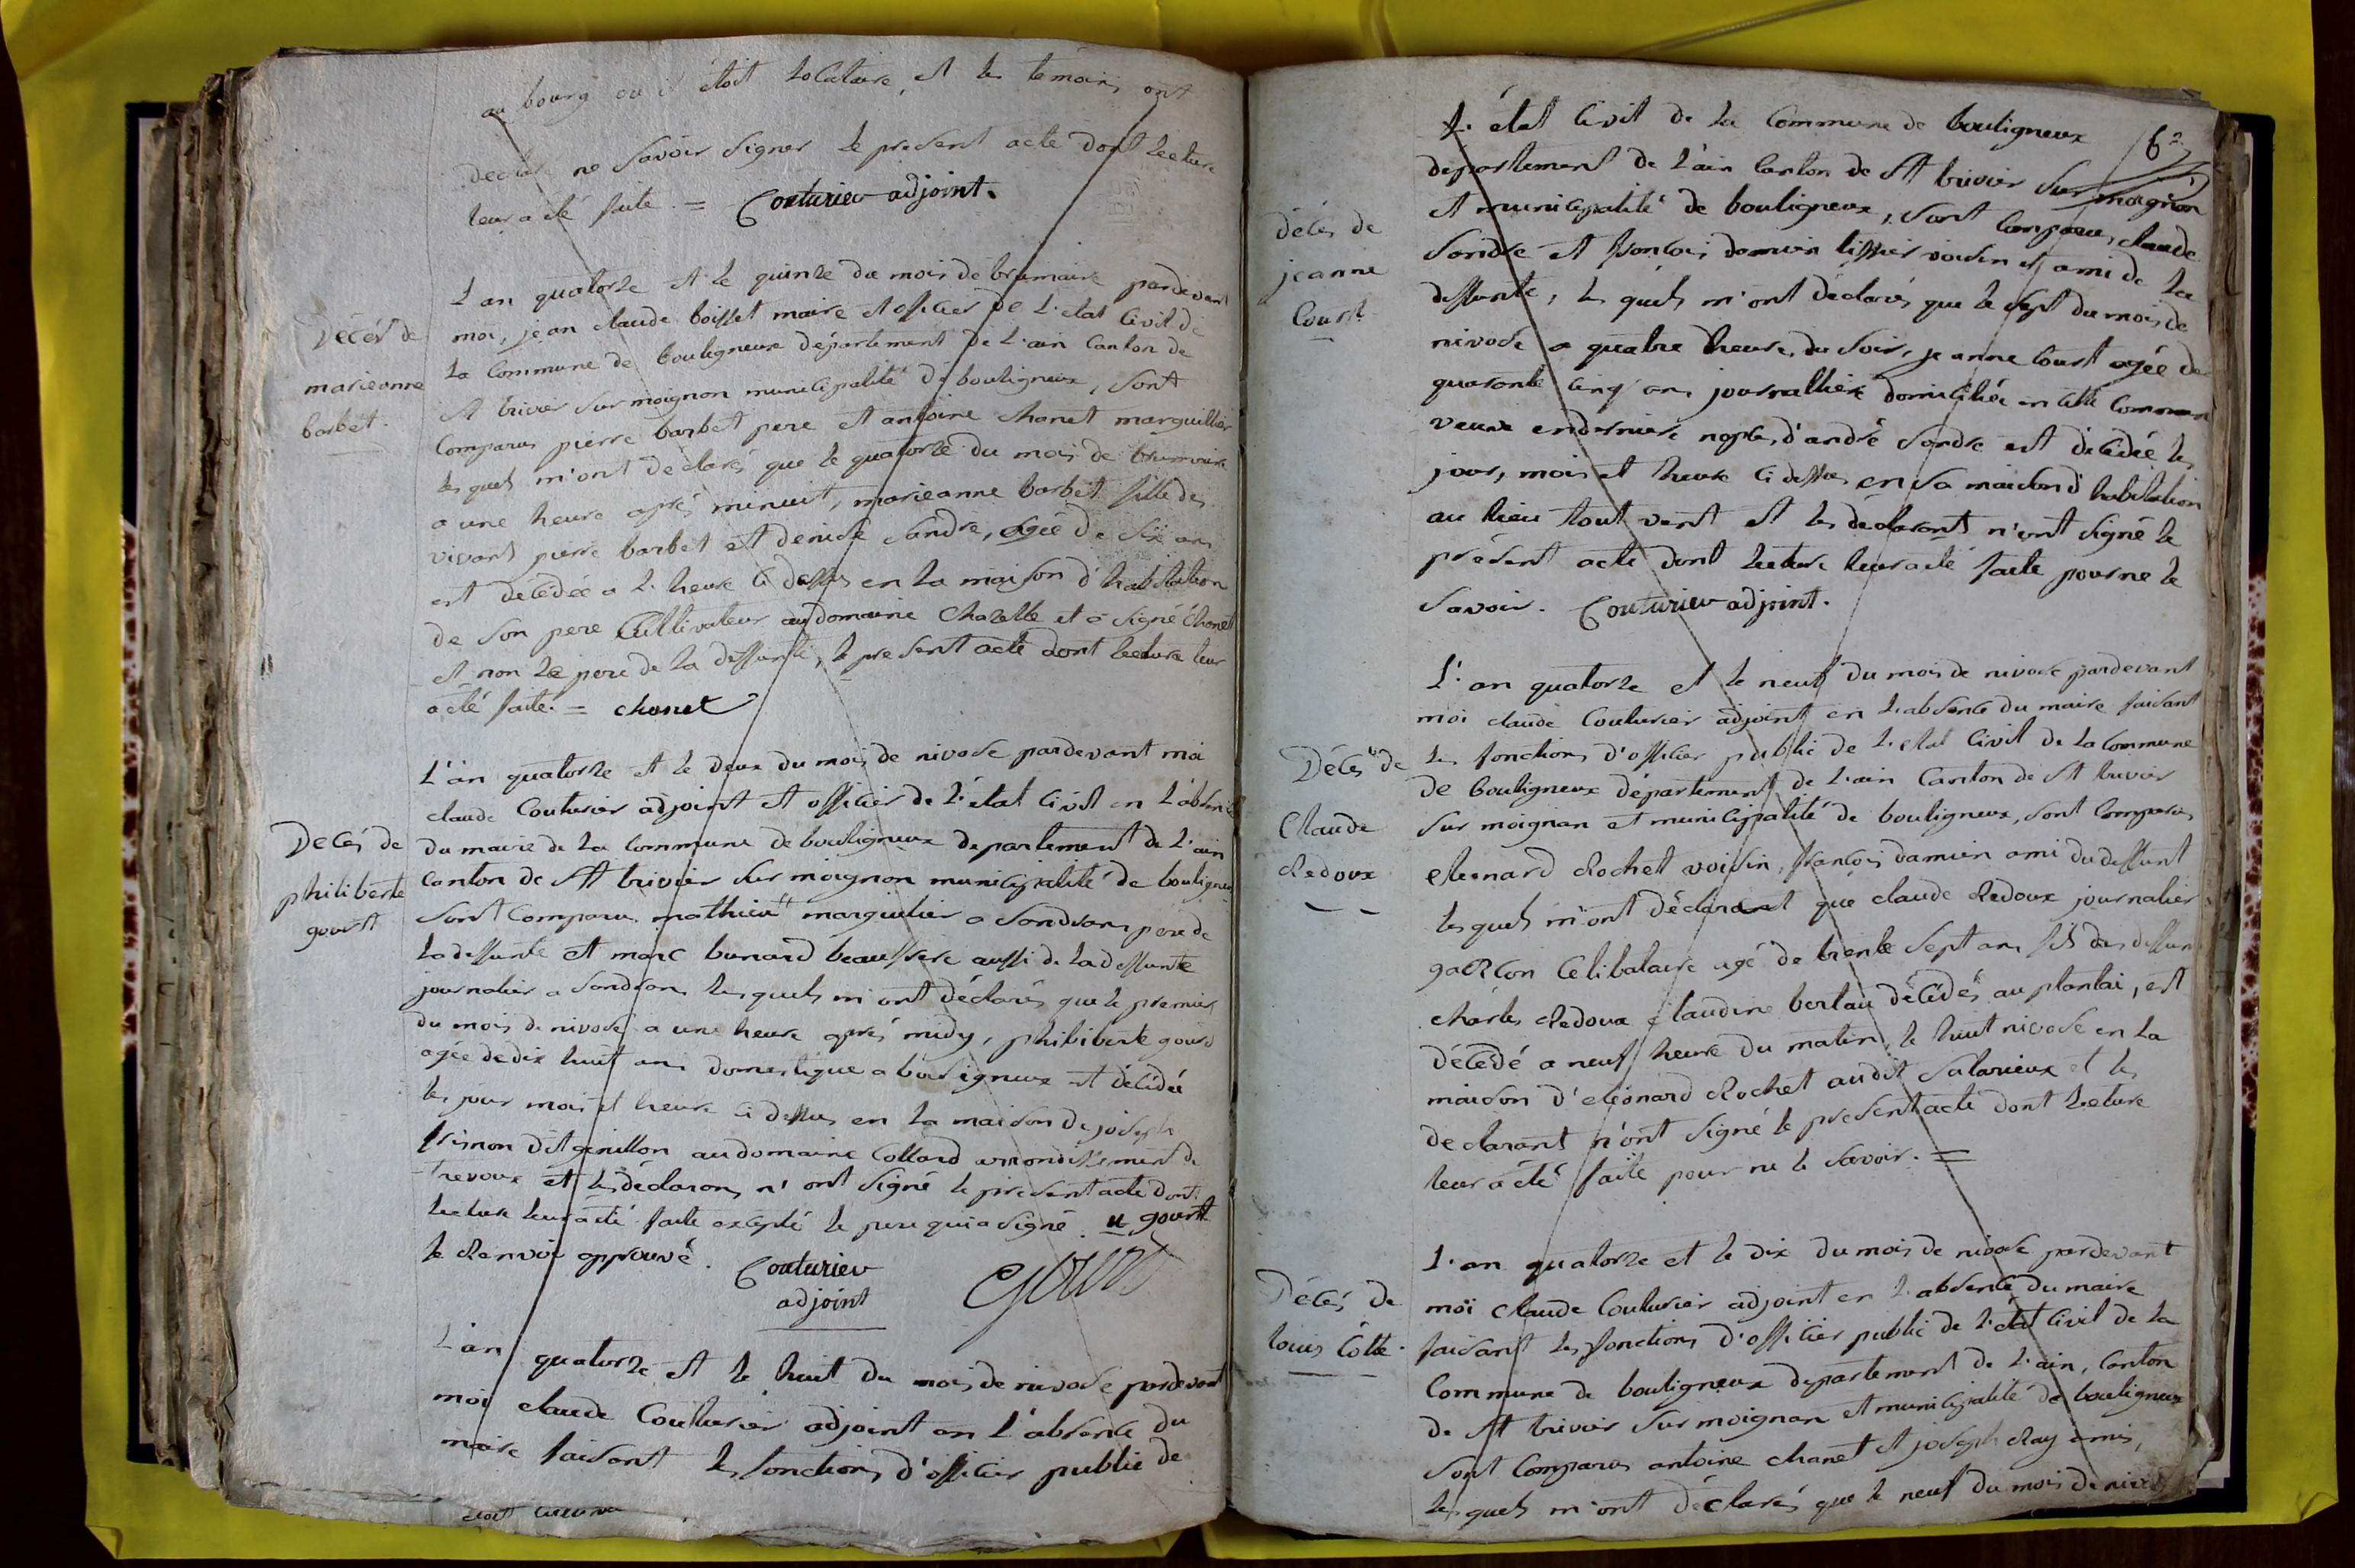 au bourg ou il étoit locataire, et les temoins ont
declaré ne Savoir Signer le present acte dont lecture
leur a été faite. = Couturier adjoint.
Décés de
marieanne
barbet.
L'an quatorze et le quinze du mois de brumaire pardevant
moi, jean claude boisset maire et officier de L'etat Civil de
La Commune de bouligneux département de L'ain Canton de
St trivier Sur moignon municipalité de bouligneux, Sont
Comparus pierre barbet pere et antoine chanet marguillier
les quels m'ont déclarés que le quatorze du mois de brumaire
a une heure aprés minuit, marieanne barbet fille des
vivant pierre barbet et denise Sandre, agée de Six ans
est décédée a L'heure Ci dessus en La maison d'habitation
de Son pere Cultivateur au domaine Chazelle et a Signé Chanet
et non Le pere de La deffunte, le present acte dont lecture leur
a été faite. = chanet
Décés de
philiberte
gourst
L'an quatorze et le deux du mois de nivose pardevant moi
claude Couturier adjoint et officier de L'état Civil en L'absence
du maire de La Commune de bouligneux departement de L'ain
Canton de St trivier Sur moignon municipalité de bouligneux
Sont Comparus mathieu " marguilier a Sandrans pere de
La deffunte et marc bunard beaufrere aussi de La deffunte
journalier a Sandrans Lesquels m'ont déclarés que le premier
du mois de nivose a une heure aprés midy, philiberte gourd
agée de dix huit ans domestique a bouligneux est décédée
les jour mois et heure Ci dessus en La maison de joseph
dit genillon au domaine Collard arrondissement de
trevoux et les déclarans n'ont Signé le present acte dont
Lecture leur a été faite excepté le pere qui a Signé. " gourst
le Renvoi approuvé. Couturier
adjoint
L'an quatorze et le huit du mois de nivose pardevant
moi claude Couturier adjoint en L'absence du
maire faisant les fonctions d'officier public de
62
L'état Civil de La Commune de bouligneux
departement de L'ain Canton de St trivier Sur moignon
et municipalité de bouligneux, Sont Comparus, claude
Sandre et francois damien tissier voisin et ami de La
deffunte, les quels m'ont déclarés que le Sept du mois de
nivose a quatre heure, du Soir, jeanne Court agée de
quarante Cinq ans journalliere domiciliée en cette Commune
veuve en derniere nopces d'andré Sandre est décédée les
jour, mois et heure Ci dessus en Sa maison d'habitation
au lieu tout vent et les declarants n'ont Signé le
présent acte dont lecture leur a été faite pour ne le
Savoir. Couturier adjoint.
Décés de
jeanne
Court
L'an quatorze et le neuf du mois de nivose pardevant
moi claude Couturier adjoint en L'absence du maire faisant
Les fonctions d'officier public de L'etat Civil de La Commune
de bouligneux département de L'ain Canton de St trivier
Sur moignan et municipalité de bouligneux, Sont Comparus
eleonard Rochet voisin, françois damien ami du deffunt
les quels m'ont déclarant que claude Redoux journalier
garcon Célibataire agé de trente Sept ans fils des deffunt
charles Redoux claudine bertau décédés au plantai, est
décédé a neuf heure du matin, le huit nivose en La
maison d'eléonard Rochet audit Salarieux et les
declarant n'ont Signé le present acte dont Lecture
leur a été faite pour ne le Savoir. =
Décés de
Claude
Redoux
L'an quatorze et le dix du mois de nivose pardevant
moi claude Couturier adjoint en L'absence du maire
faisant les fonctions d'officier public de L'état Civil de La
Commune de bouligneux departement de L'ain, Canton
de St trivier Sur moignan et municipalité de bouligneux
Sont Comparus antoine chanet et joseph Ray amis,
les quels m'ont déclarés que le neuf du mois de nivose
Décés de
louis Cotte.